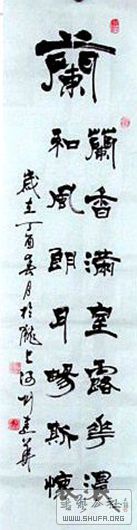 蘭
蘭香滿室露華濃
和風朗月暢斯懷
歲在丁酉年月於隴上河州
WWW.SHUFA.ORG